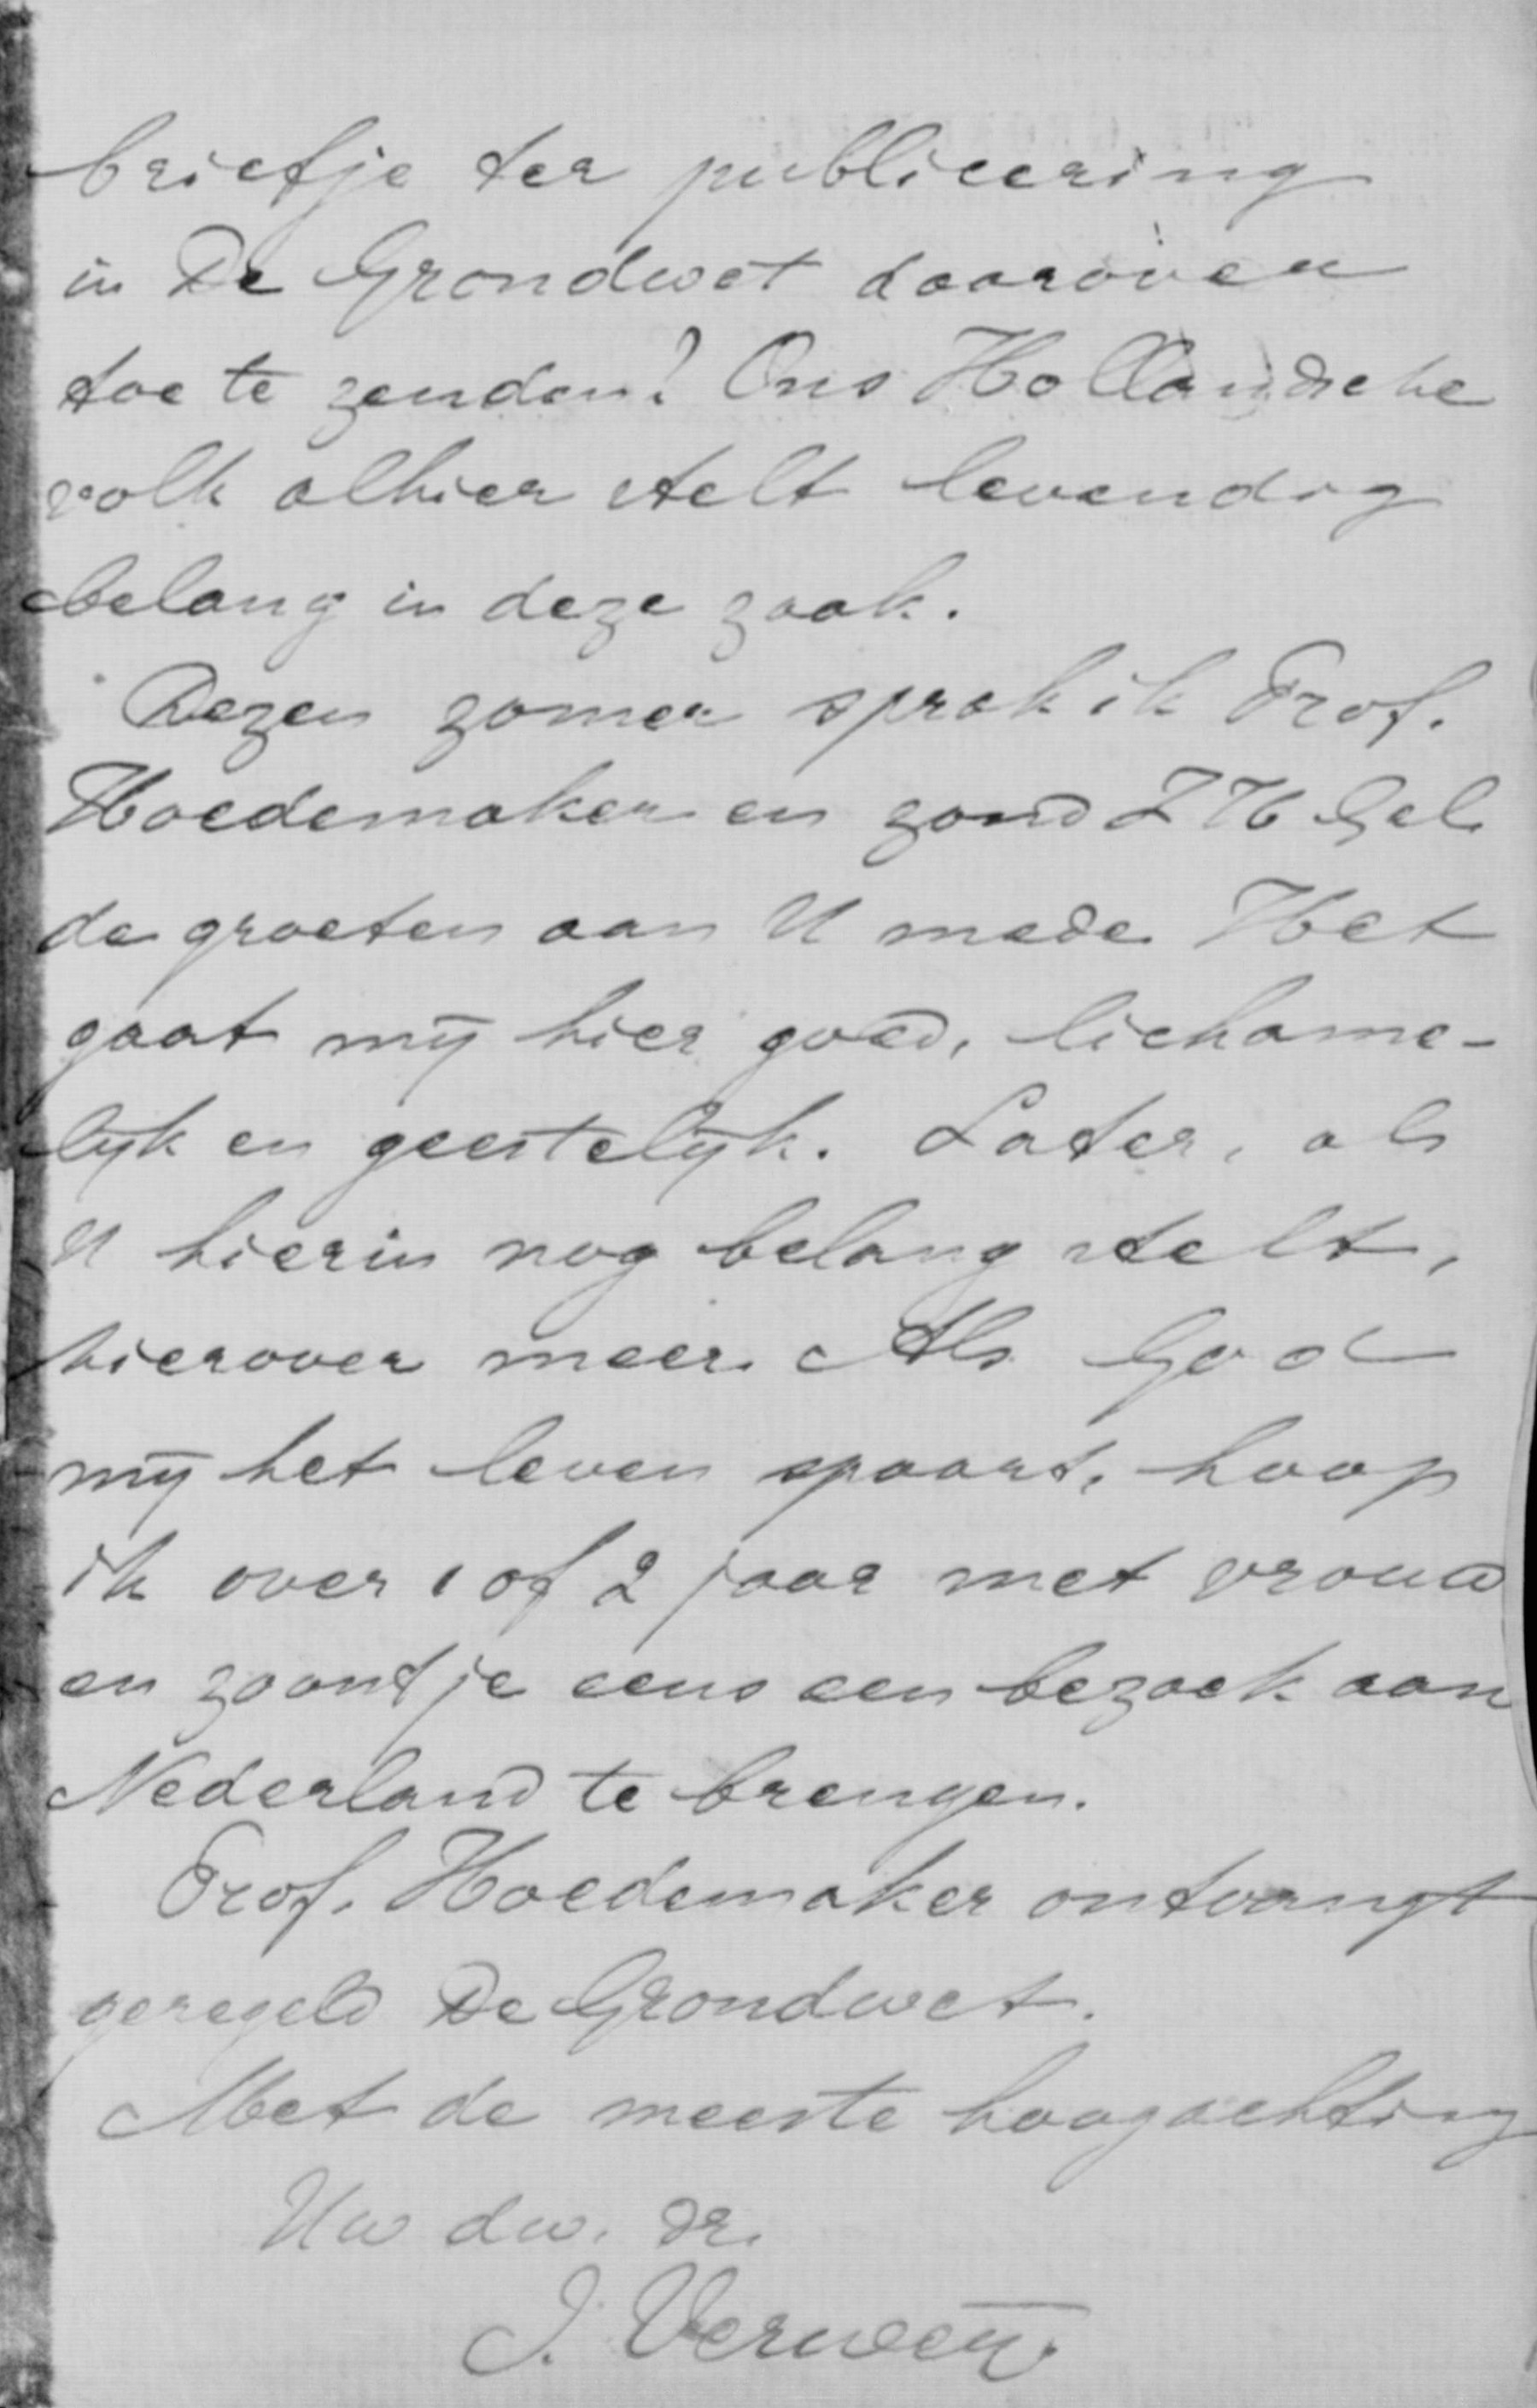 briefje ter publiceering
in De Grondwet daarover
toe te zenden? Ons Hollandsche
volk alhier stelt levendig
belang in deze zaak.
Dezen zomer sprak ik Prof.
Hoedemaker en zond ZHGel
de groeten aan U mede. Het
gaat mij hier goed, lichame-
lijk en geestelijk. Later, als
U hierin nog belang stelt,
hierover meer. Als God
mij het leven spaart, hoop
ik over 1 of 2 jaar met vrouw
en zoontje eens een bezoek aan
Nederland te brengen.
Prof. Hoedemaker ontvangt
geregeld De Grondwet.
Met de meeste hoogachting
Uw dw. dr.
J. Verweij.